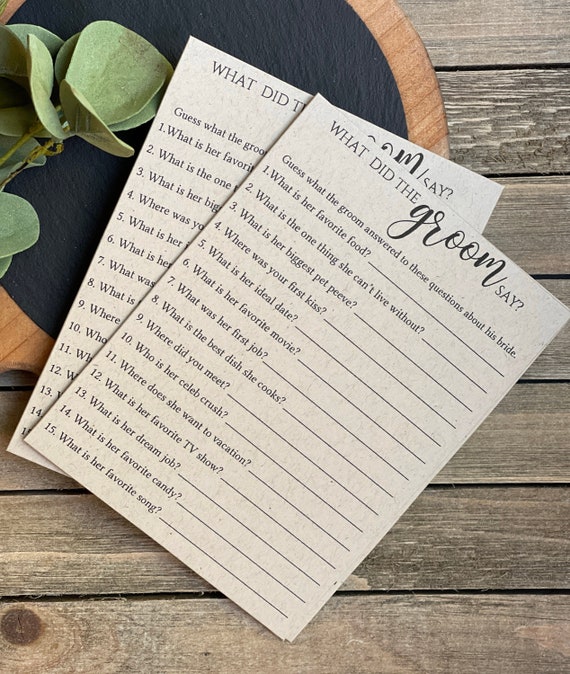 WHAT DID THE
groom SAY?
Guess what the groom answered to these questions about his bride.
1. What is her favorite food?
2. What is the one thing she can't live without?
3. What is her biggest pet peeve?
4. Where was your first kiss?
5. What is her ideal date?
6. What is her favorite movie?
7. What was her first job?
8. What is the best dish she cooks?
9. Where did you meet?
10. Who is her celeb crush?
11. Where does she want to vacation?
12. What is her favorite TV show?
13. What is her dream job?
14. What is her favorite candy?
15. What is her favorite song?
WHAT DID
SAY?
Guess what the groom
1. What is her favorite
2. What is the one
3. What is her big
4. Where was your
5. What is her i
6. What is her
7. What was
8. What is
9. Where
10. Who
11. Whe
12. W
13. W
14.
15.